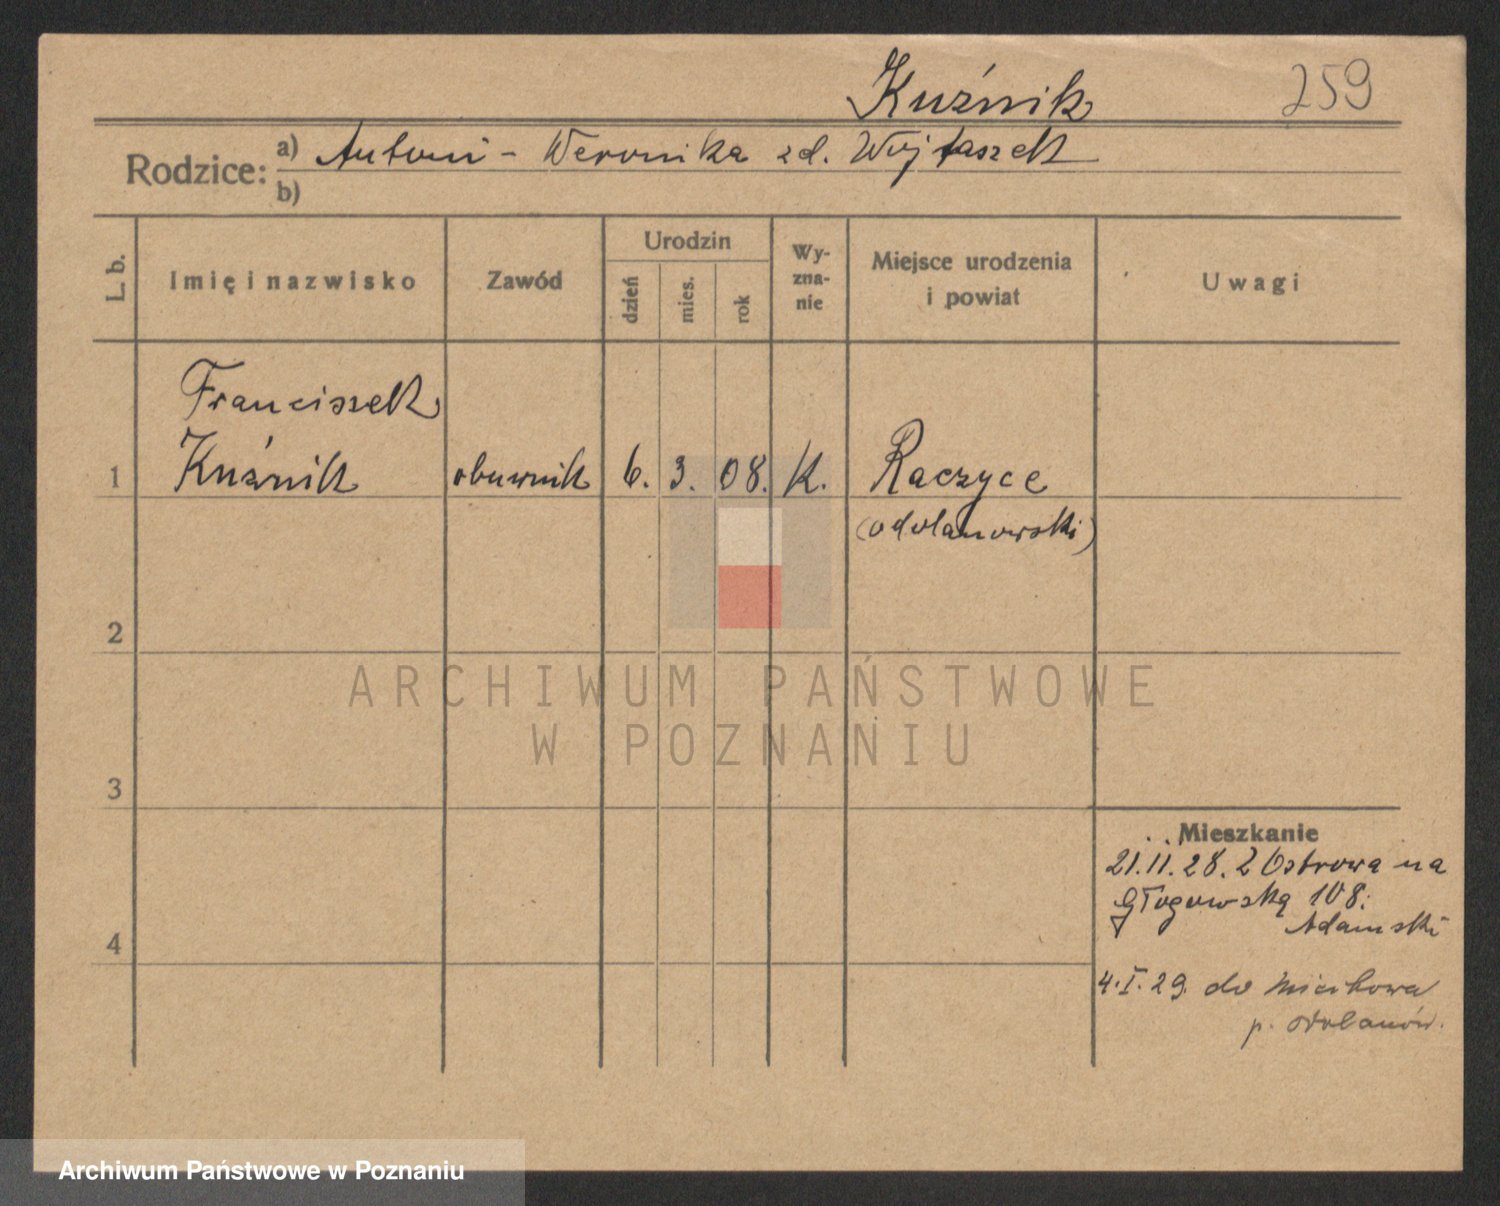 Kuźnik 259
Rodzice: a) Antoni - Weronika zd. Wojtaszek
b)
L. b. Imię i nazwisko Zawód Urodzin dzień mies. rok Wyznanie Miejsce urodzenia i powiat Uwagi
Franciszek
1 Kuźnik obuwnik 6. 3. 08. K. Raczyce
(odolanowski)
2
ARCHIWUM PAŃSTWOWE
W POZNANIU
3
Mieszkanie
21.11.28. Z Ostrowa na
Głogowską 108.
Adamski
4
4.I.29. do
p. Odolanów.
Archiwum Państwowe w Poznaniu